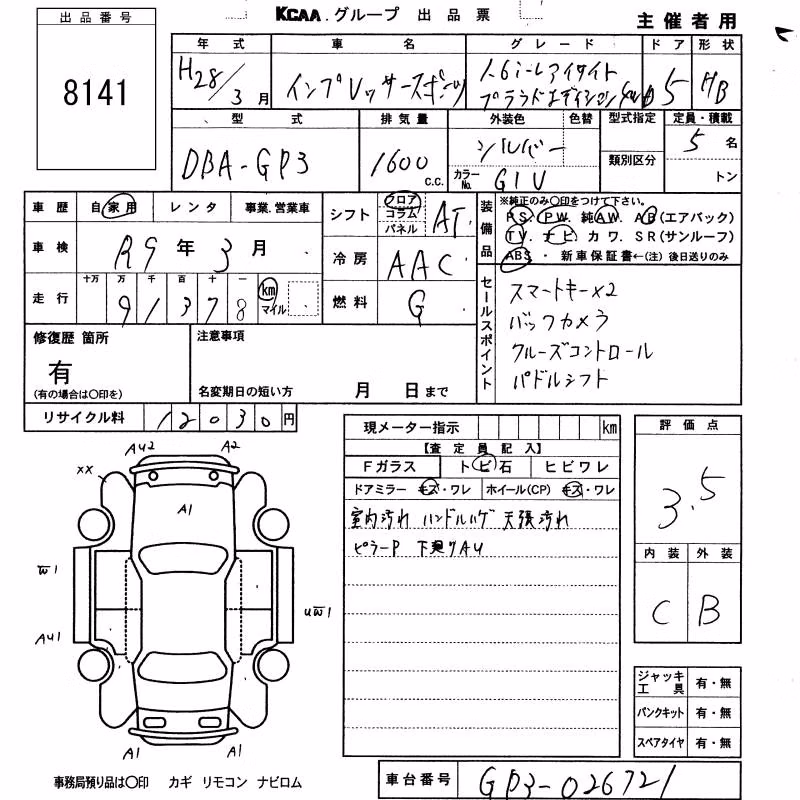 KCAA.グループ 出品票
主催者用
出品番号
8141
年式 車名 グレード ドア 形状
H28/3月 インプレッサスポーツ 1.6i-Lアイサイト 5 HB
プラウドエディション 4WD
型式 排気量 外装色 色替 型式指定 定員・積載
DBA-GP3 1600 c.c. シルバー 5名
カラーNo. G1U 類別区分 トン
車歴 自家用 レンタ 事業.営業車
シフト フロア コラム パネル AT
装備品 ※純正のみ○印をつけて下さい。
PS. PW. 純AW. AB(エアバック)
TV. ナビ. カワ. SR(サンルーフ)
ABS ・ 新車保証書←(注)後日送りのみ
車検 R9年3月
冷房 AAC
走行 十万 万 千 百 十 一
91378 km マイル
燃料 G
セールスポイント
スマートキー×2
バックカメラ
クルーズコントロール
パドルシフト
修復歴 箇所
有
(有の場合は○印を)
注意事項
名変期日の短い方 月 日まで
リサイクル料 12030円
現メーター指示 km
【査定員記入】
Fガラス トビ石 ヒビワレ
ドアミラー キズ・ワレ ホイール(CP) キズ・ワレ
室内汚れ ハンドルハゲ 天張汚れ
ピラーP 下廻りAU
評価点
3.5
内装 外装
C B
AU2 A2
XX
A1
W1
UW1
AU1
A1 A1
ジャッキ工具 有・無
パンクキット 有・無
スペアタイヤ 有・無
事務局預り品は○印 カギ リモコン ナビロム
車台番号 GP3-026721